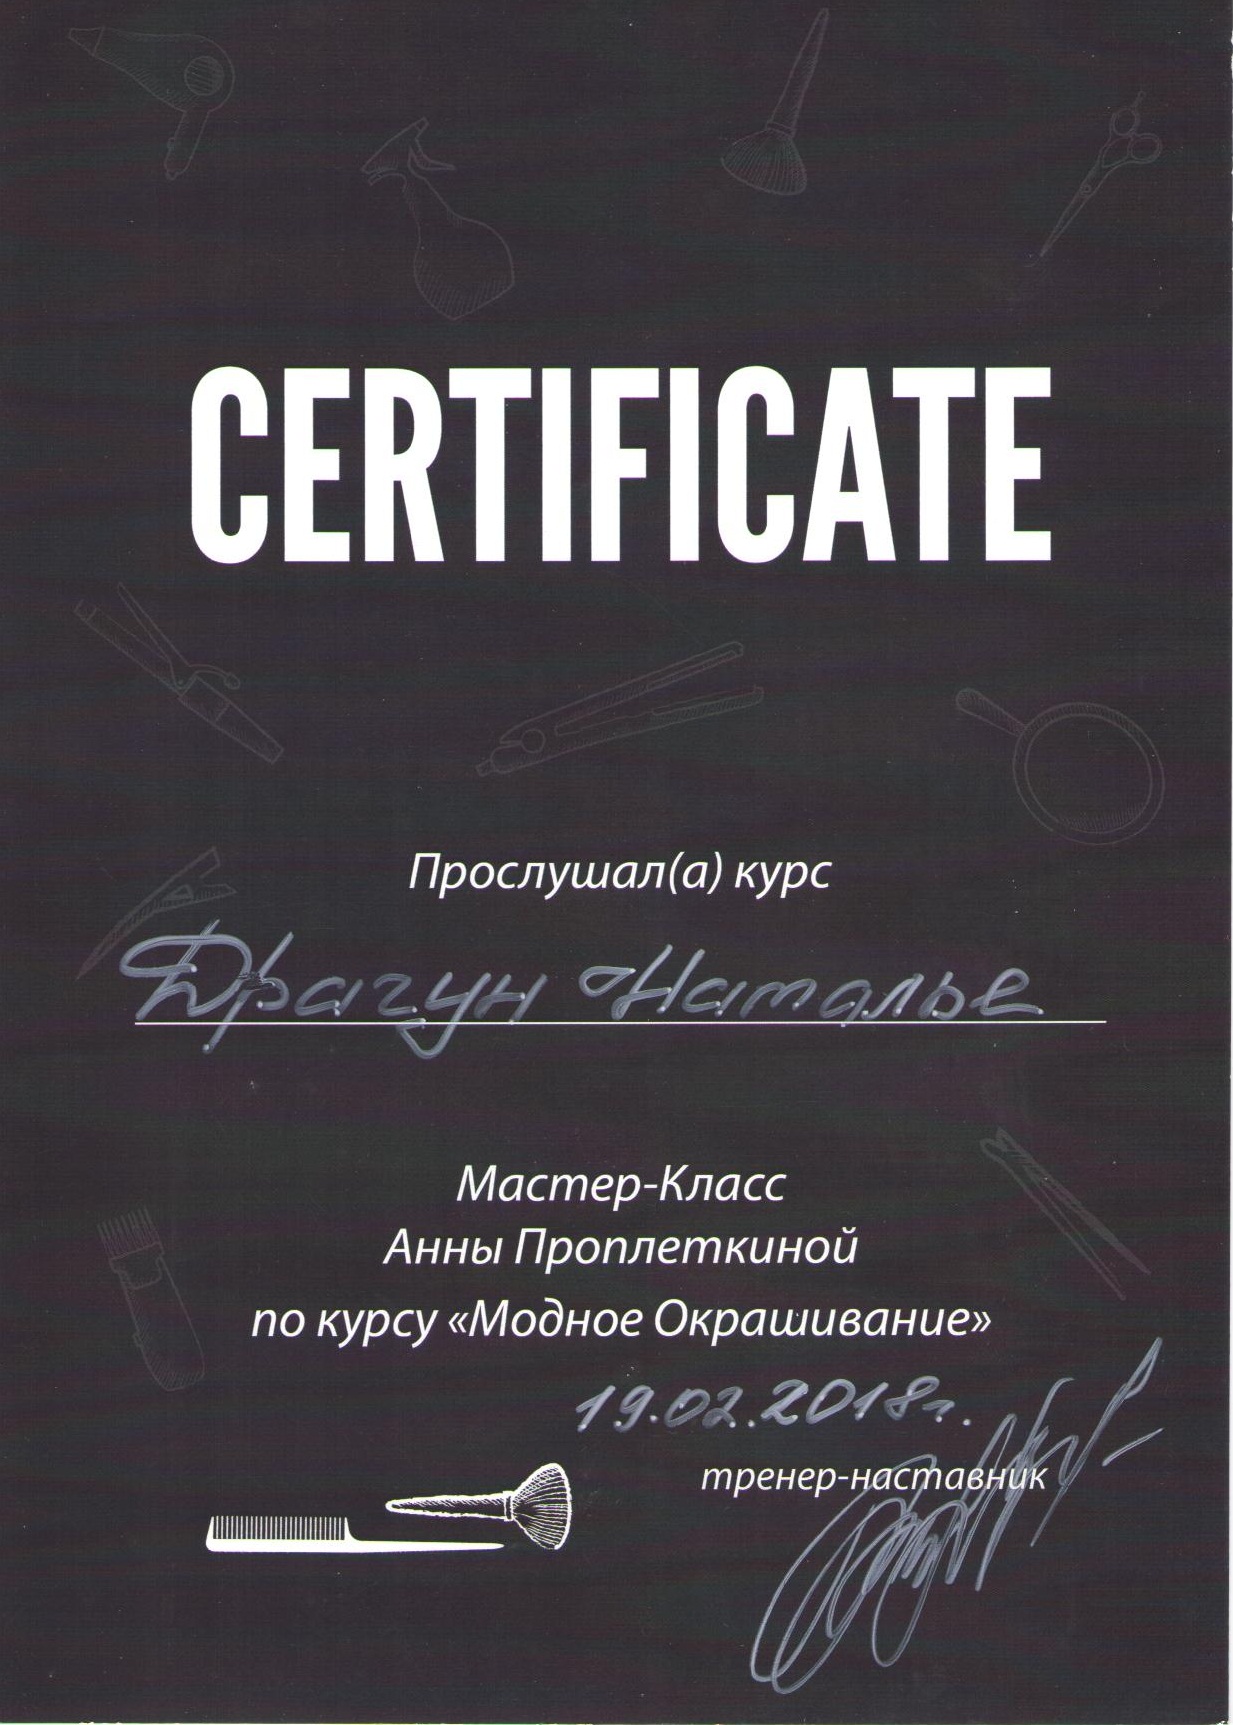 CERTIFICATE
Прослушал(а) курс
Драгун Наталье
Мастер-Класс
Анны Проплеткиной
по курсу «Модное Окрашивание»
19.02.2018г.
тренер-наставник